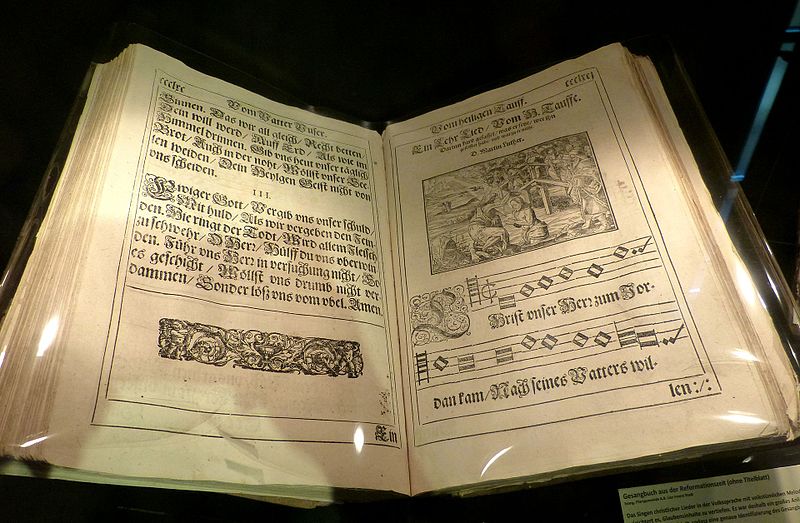 cccclxc
Vom Vatter Vnser.
Sinnen. Das wir all gleich/ Recht betten/
Dein will werd/ Auff Erd/ Als wie im
Himmel drinnen. Gib vns heut vnser täglich
Brot/ Auch in der noht/ Wöllst vnser See-
len weiden/ Dein Heyligen Geist nicht von
vns scheiden.
III.
Ewiger Gott/ Vergib vns vnser schuld/
Mit huld/ Als wir vergeben den Fein-
den. Hie ringt der Todt/ Wird allem Fleisch
zu schwehr/ O Herr/ Hülff du vns vberwin-
den. Führ vns Herr in versuchung nicht/ So
es geschicht/ Wöllst vns drumb nicht ver-
dammen/ Sonder löß vns vom vbel. Amen.
Ein
cccclxcj
Vom heiligen Tauff.
Ein Lehr Lied/ Vom H. Tauffe.
Darinn kurz gefasset/ was er sey/ wer ihn
D. Martin Luther.
Christ vnser Herr zum Jor-
dan kam/ Nach seines Vatters wil-
len :/:
Gesangbuch aus der Reformationszeit (ohne Titelblatt)
Das Singen christlicher Lieder in der Volkssprache mit volkstümlichen